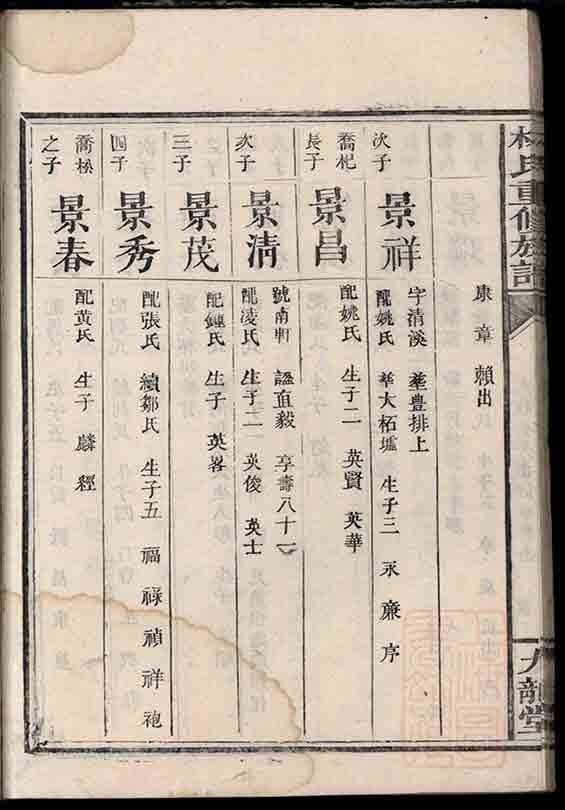 林氏重修族譜
九龍堂
康 章 賴出
次子 景祥
字清溪 塟豐排上
配姚氏 塟大柘墟 生子三 永 廉 序
喬杞長子 景昌
配姚氏 生子二 英賢 英華
次子 景清
號南軒 諡直毅 享壽八十一
配凌氏 生子二 英俊 英士
三子 景茂
配鍾氏 生子 英畧
四子 景秀
配張氏 續鄒氏 生子五 福 祿 禎 祥 袍
喬松之子 景春
配黄氏 生子 麟 經